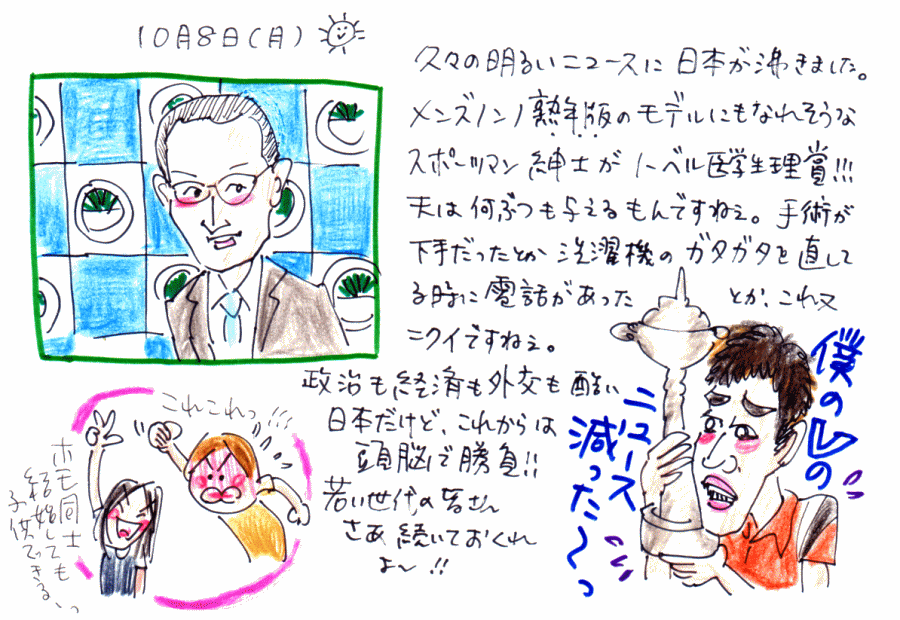 10月8日(月)
久々の明るいニュースに日本が沸きました。
メンズノンノ熟年版のモデルにもなれそうな
スポーツマン紳士がノーベル医学生理賞!!!
天は何ぶつも与えるもんですねぇ。手術が
下手だったとか洗濯機のガタガタを直して
る時に電話があった とか、これ又
ニクイですねぇ。
政治も経済も外交も酷い
日本だけど、これからは
頭脳で勝負!!
若い世代の皆さん
さあ続いておくれ
よ〜!!
僕のVの
ニュース
減った〜っ
これこれっ!!!
ホモ同士
結婚しても
子供できるぅっ